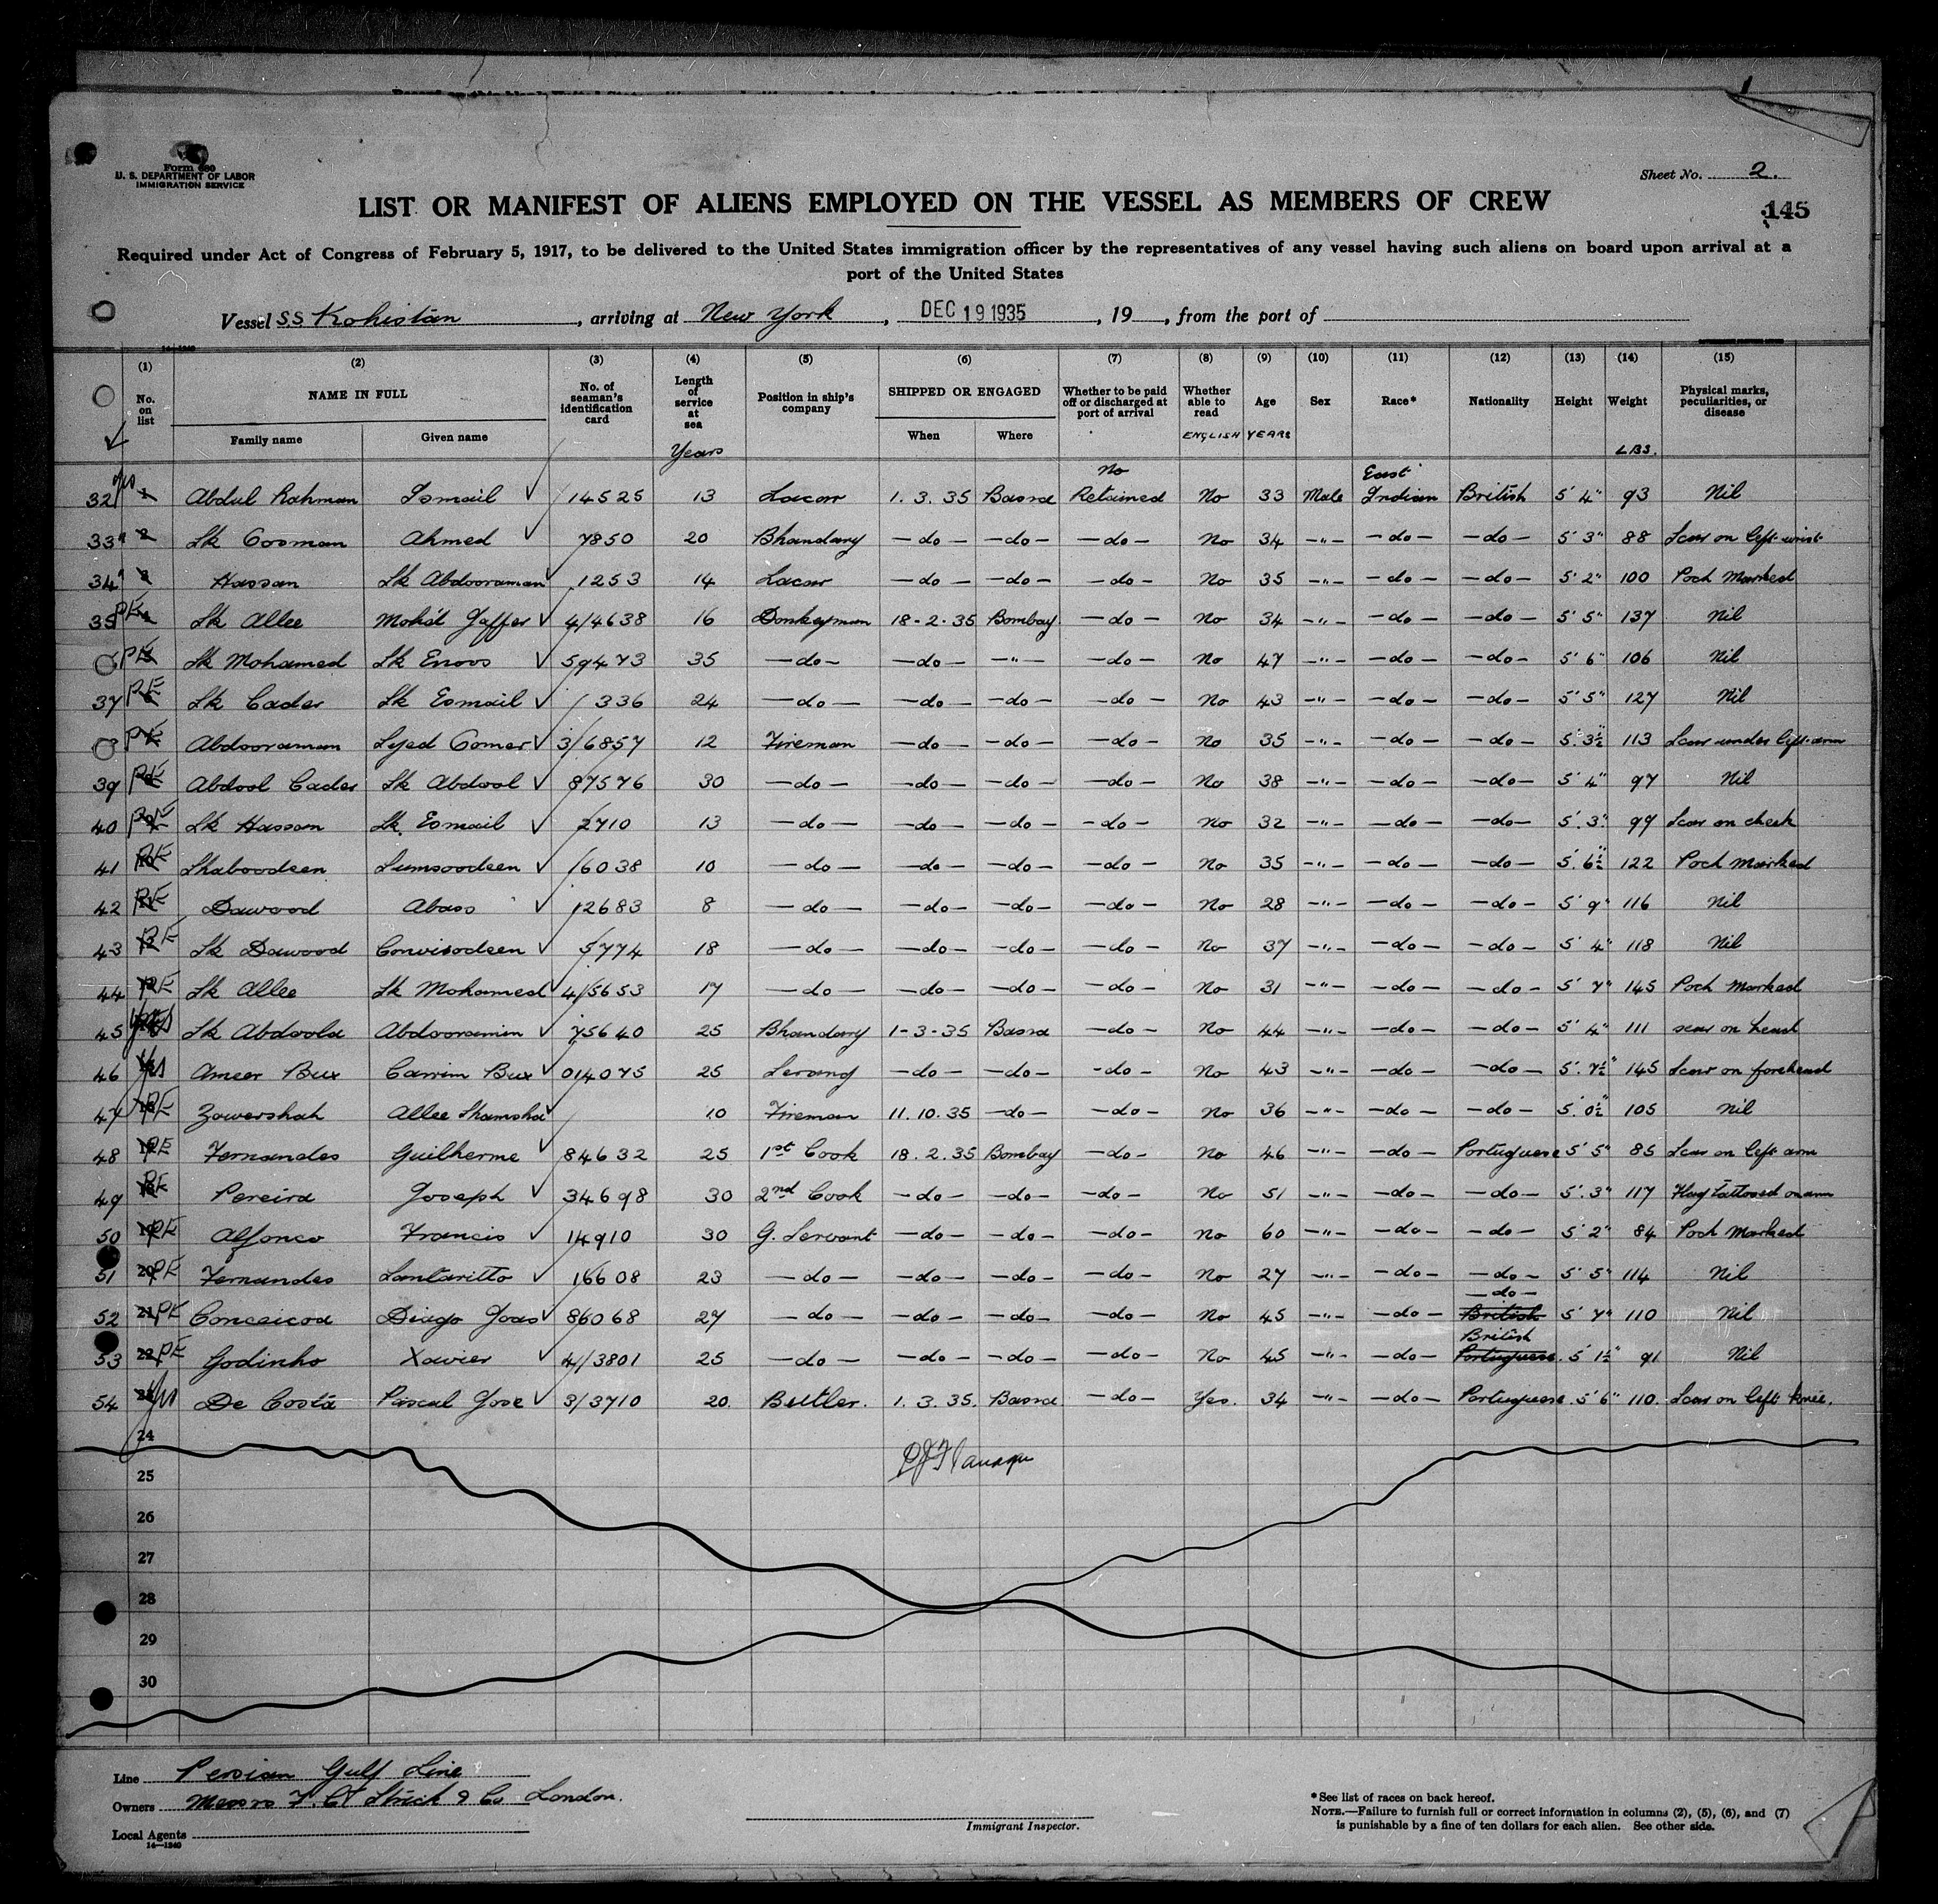 Form 680
U. S. DEPARTMENT OF LABOR
IMMIGRATION SERVICE
Sheet No. 2.
LIST OR MANIFEST OF ALIENS EMPLOYED ON THE VESSEL AS MEMBERS OF CREW
145
Required under Act of Congress of February 5, 1917, to be delivered to the United States immigration officer by the representatives of any vessel having such aliens on board upon arrival at a
port of the United States
Vessel S.S Kohistan, arriving at New York, DEC 19 1935, 19, from the port of
(1) (2) (3) (4) (5) (6) (7) (8) (9) (10) (11) (12) (13) (14) (15)
No. on list NAME IN FULL Family name Given name No. of seaman's identification card Length of service at sea Years Position in ship's company SHIPPED OR ENGAGED When Where Whether to be paid off or discharged at port of arrival Whether able to read ENGLISH Age YEARS Sex Race* Nationality Height Weight LBS. Physical marks, peculiarities, or disease
32 yes 1 Abdul Rahman Ismail 14525 13 Lacar 1.3.35 Basra No Retained No 33 Male East Indian British 5' 4" 93 Nil
33 " 2 Sk Oosman Ahmed 7850 20 Bhandary -do- -do- -do- No 34 -"- -do- -do- 5' 3" 88 Scar on left wrist
34 " 3 Hassan Sk Abdooraman 1253 14 Lacar -do- -do- -do- No 35 -"- -do- -do- 5' 2" 100 Pock Marked
35 PE 4 Sk Allee Mohd Jaffer 4/4638 16 Donkeyman 18-2-35 Bombay -do- No 34 -"- -do- -do- 5' 5" 137 Nil
PE Sk Mohamed Sk Enoos 59473 35 -do- -do- -"- -do- No 47 -"- -do- -do- 5' 6" 106 Nil
37 PE Sk Cader Sk Esmail 1336 24 -do- -do- -do- -do- No 43 -"- -do- -do- 5' 5" 127 Nil
PE Abdooraman Syed Oomer 3/6857 12 Fireman -do- -do- -do- No 35 -"- -do- -do- 5' 3½ 113 Scar under left arm
39 PE Abdool Cader Sk Abdool 87576 30 -do- -do- -do- -do- No 38 -"- -do- -do- 5' 4" 97 Nil
40 PE Sk Hassan Sk. Esmail 2710 13 -do- -do- -do- -do- No 32 -"- -do- -do- 5' 3" 99 Scar on cheek
41 PE Shaboodeen Sumsoodeen 16038 10 -do- -do- -do- -do- No 35 -"- -do- -do- 5' 6½" 122 Pock Marked
42 PE Dawood Abass 12683 8 -do- -do- -do- -do- No 28 -"- -do- -do- 5' 9" 116 Nil
43 PE Sk Dawood Cawisodeen 5774 18 -do- -do- -do- -do- No 37 -"- -do- -do- 5' 4" 118 Nil
44 PE Sk Allee Sk Mohamed 4/5653 17 -do- -do- -do- -do- No 31 -"- -do- -do- 5' 7" 145 Pock Marked
45 yes Sk Abdoola Abdooramin 75640 25 Bhandary 1-3-35 Basra -do- No 44 -"- -do- -do- 5' 4" 111 scar on head
46 yes Ameer Bux Carrim Bux 014075 25 Serang -do- -do- -do- No 43 -"- -do- -do- 5' 7½" 145 Scar on forehead
47 PE Zowershah Allee Shamsha 10 Fireman 11.10.35 -do- -do- No 36 -"- -do- -do- 5' 0½" 105 Nil
48 PE Fernandes Guilherme 84632 25 1st Cook 18.2.35 Bombay -do- No 46 -"- -do- Portuguese 5' 5" 85 Scar on left arm
49 PE Pereira Joseph 34698 30 2nd Cook -do- -do- -do- No 51 -"- -do- -do- 5' 3" 117 Flag tattooed on arm
50 19 PE Alfonco Francis 14910 30 G. Servant -do- -do- -do- No 60 -"- -do- -do- 5' 2" 84 Pock Marked
51 20 PE Fernandes Santaritto 16608 23 -do- -do- -do- -do- No 27 -"- -do- -do- 5' 5" 114 Nil
52 21 PE Conceicoa Diago Joas 86068 27 -do- -do- -do- -do- No 45 -"- -do- British -do- 5' 7" 110 Nil
53 22 PE Godinho Xavier 4/3801 25 -do- -do- -do- -do- No 45 -"- -do- Portuguese British 5' 1½" 91 Nil
54 23 yes De Costa Pascal Jose 3/3710 20. Butler. 1.3.35. Basra -do- Yes. 34 -"- -do- Portuguese. 5' 6" 110. Scar on left knee.
24
25
26
27
28
29
30
Line Persian Gulf Line
Owners Messrs F. C. Strick & Co London.
Local Agents
14—1240
Immigrant Inspector.
*See list of races on back hereof.
NOTE.—Failure to furnish full or correct information in columns (2), (5), (6), and (7)
is punishable by a fine of ten dollars for each alien. See other side.